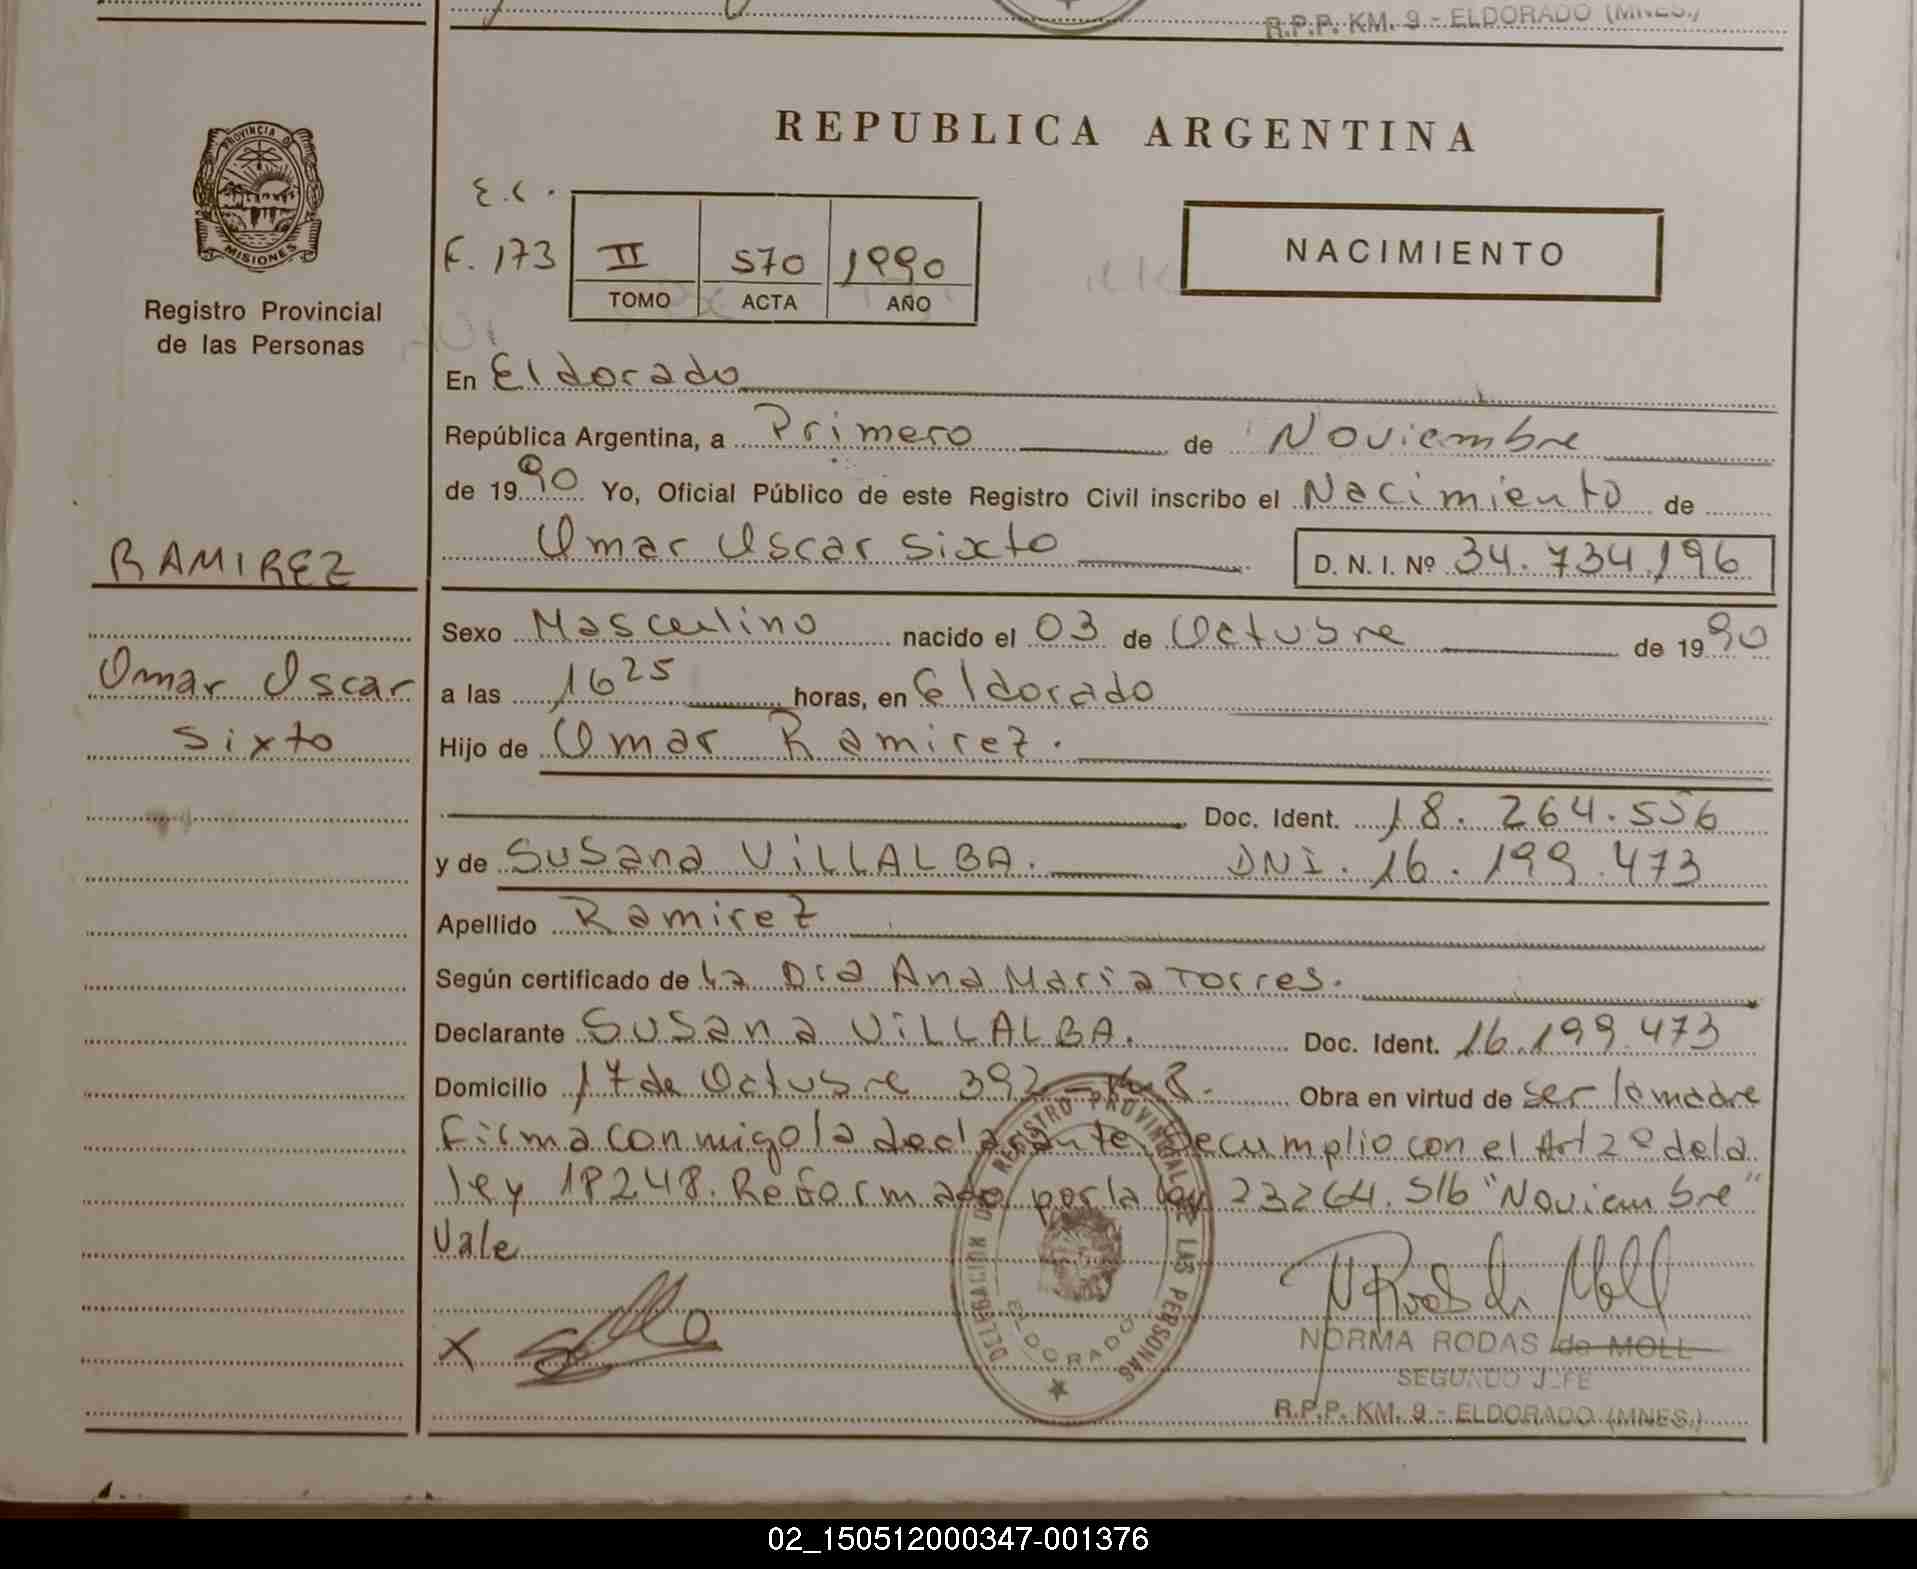 R.P.P. KM. 9 - ELDORADO (MNES.)
PROVINCIA DE
MISIONES
Registro Provincial
de las Personas
REPUBLICA ARGENTINA
E.C.
F. 173
II 570 1990
TOMO ACTA AÑO
NACIMIENTO
En Eldorado
República Argentina, a Primero de Noviembre
de 1990 Yo, Oficial Público de este Registro Civil inscribo el Nacimiento de
Omar Oscar Sixto D. N. I. Nº 34.734.196
RAMIREZ
Omar Oscar
Sixto
Sexo Masculino nacido el 03 de Octubre de 1990
a las 16 25 horas, en Eldorado
Hijo de Omar Ramirez.
Doc. Ident. 18.264.556
y de Susana VILLALBA. DNI. 16.199.473
Apellido Ramirez
Según certificado de La Dra Ana Maria Torres.
Declarante Susana VILLALBA. Doc. Ident. 16.199.473
Domicilio 17 de Octubre 392 Obra en virtud de ser la madre
Firma conmigo la declarante Se cumplio con el Art 2º de la
ley 18248. Reformado por la ley 23264. S/b "Noviembre"
Vale
X
DELEGACION DEL REGISTRO PROVINCIAL DE LAS PERSONAS
ELDORADO
N Rodas de Moll
NORMA RODAS de MOLL
SEGUNDO JEFE
R.P.P. KM. 9 - ELDORADO (MNES.)
02_150512000347-001376